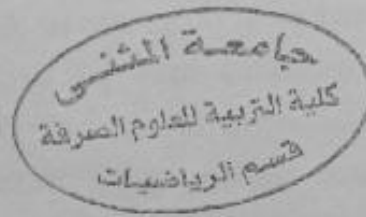 جامعة المثنى
كلية التربية للعلوم الصرفة
قسم الرياضيات